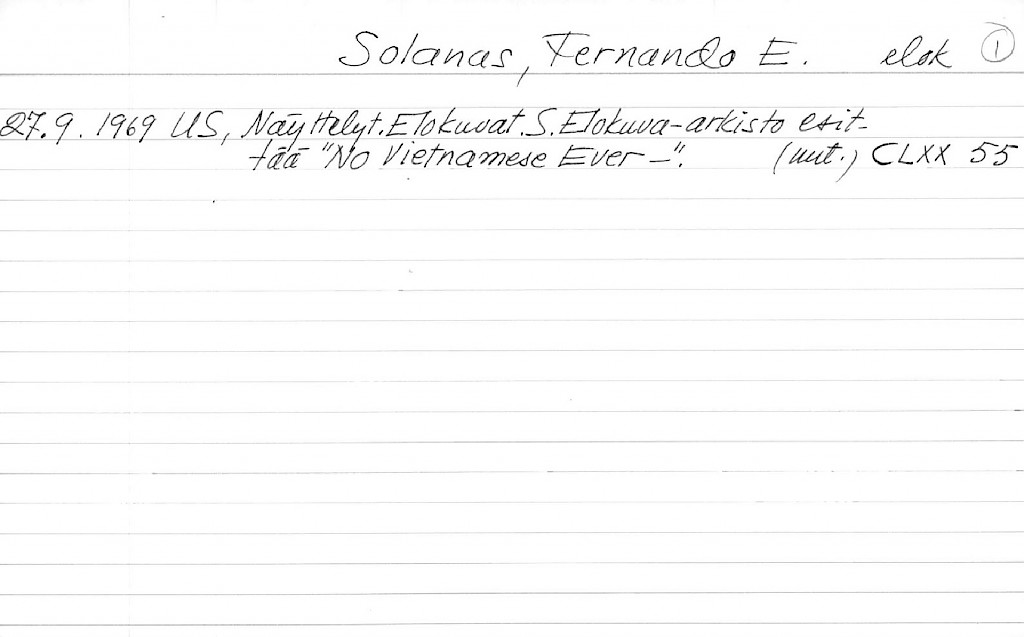 Solanas, Fernando E. elok 1
27.9. 1969 US, Näyttelyt. Elokuvat. S. Elokuva-arkisto esit-
tää "No Vietnamese Ever –". (uut.) CLXX 55